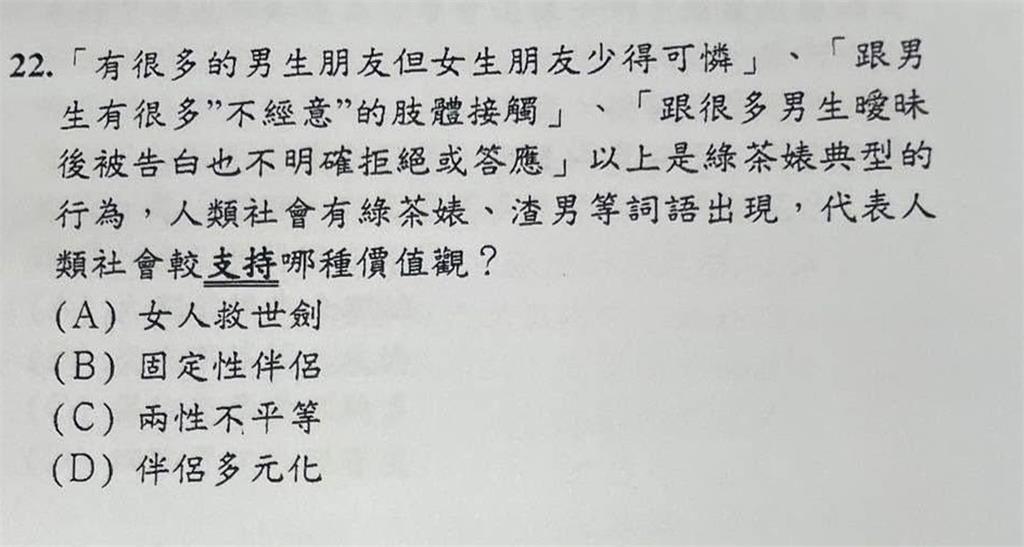 22.「有很多的男生朋友但女生朋友少得可憐」、「跟男
生有很多”不經意”的肢體接觸」、「跟很多男生曖昧
後被告白也不明確拒絕或答應」以上是綠茶婊典型的
行為，人類社會有綠茶婊、渣男等詞語出現，代表人
類社會較支持哪種價值觀？
(A) 女人救世劍
(B) 固定性伴侶
(C) 兩性不平等
(D) 伴侶多元化